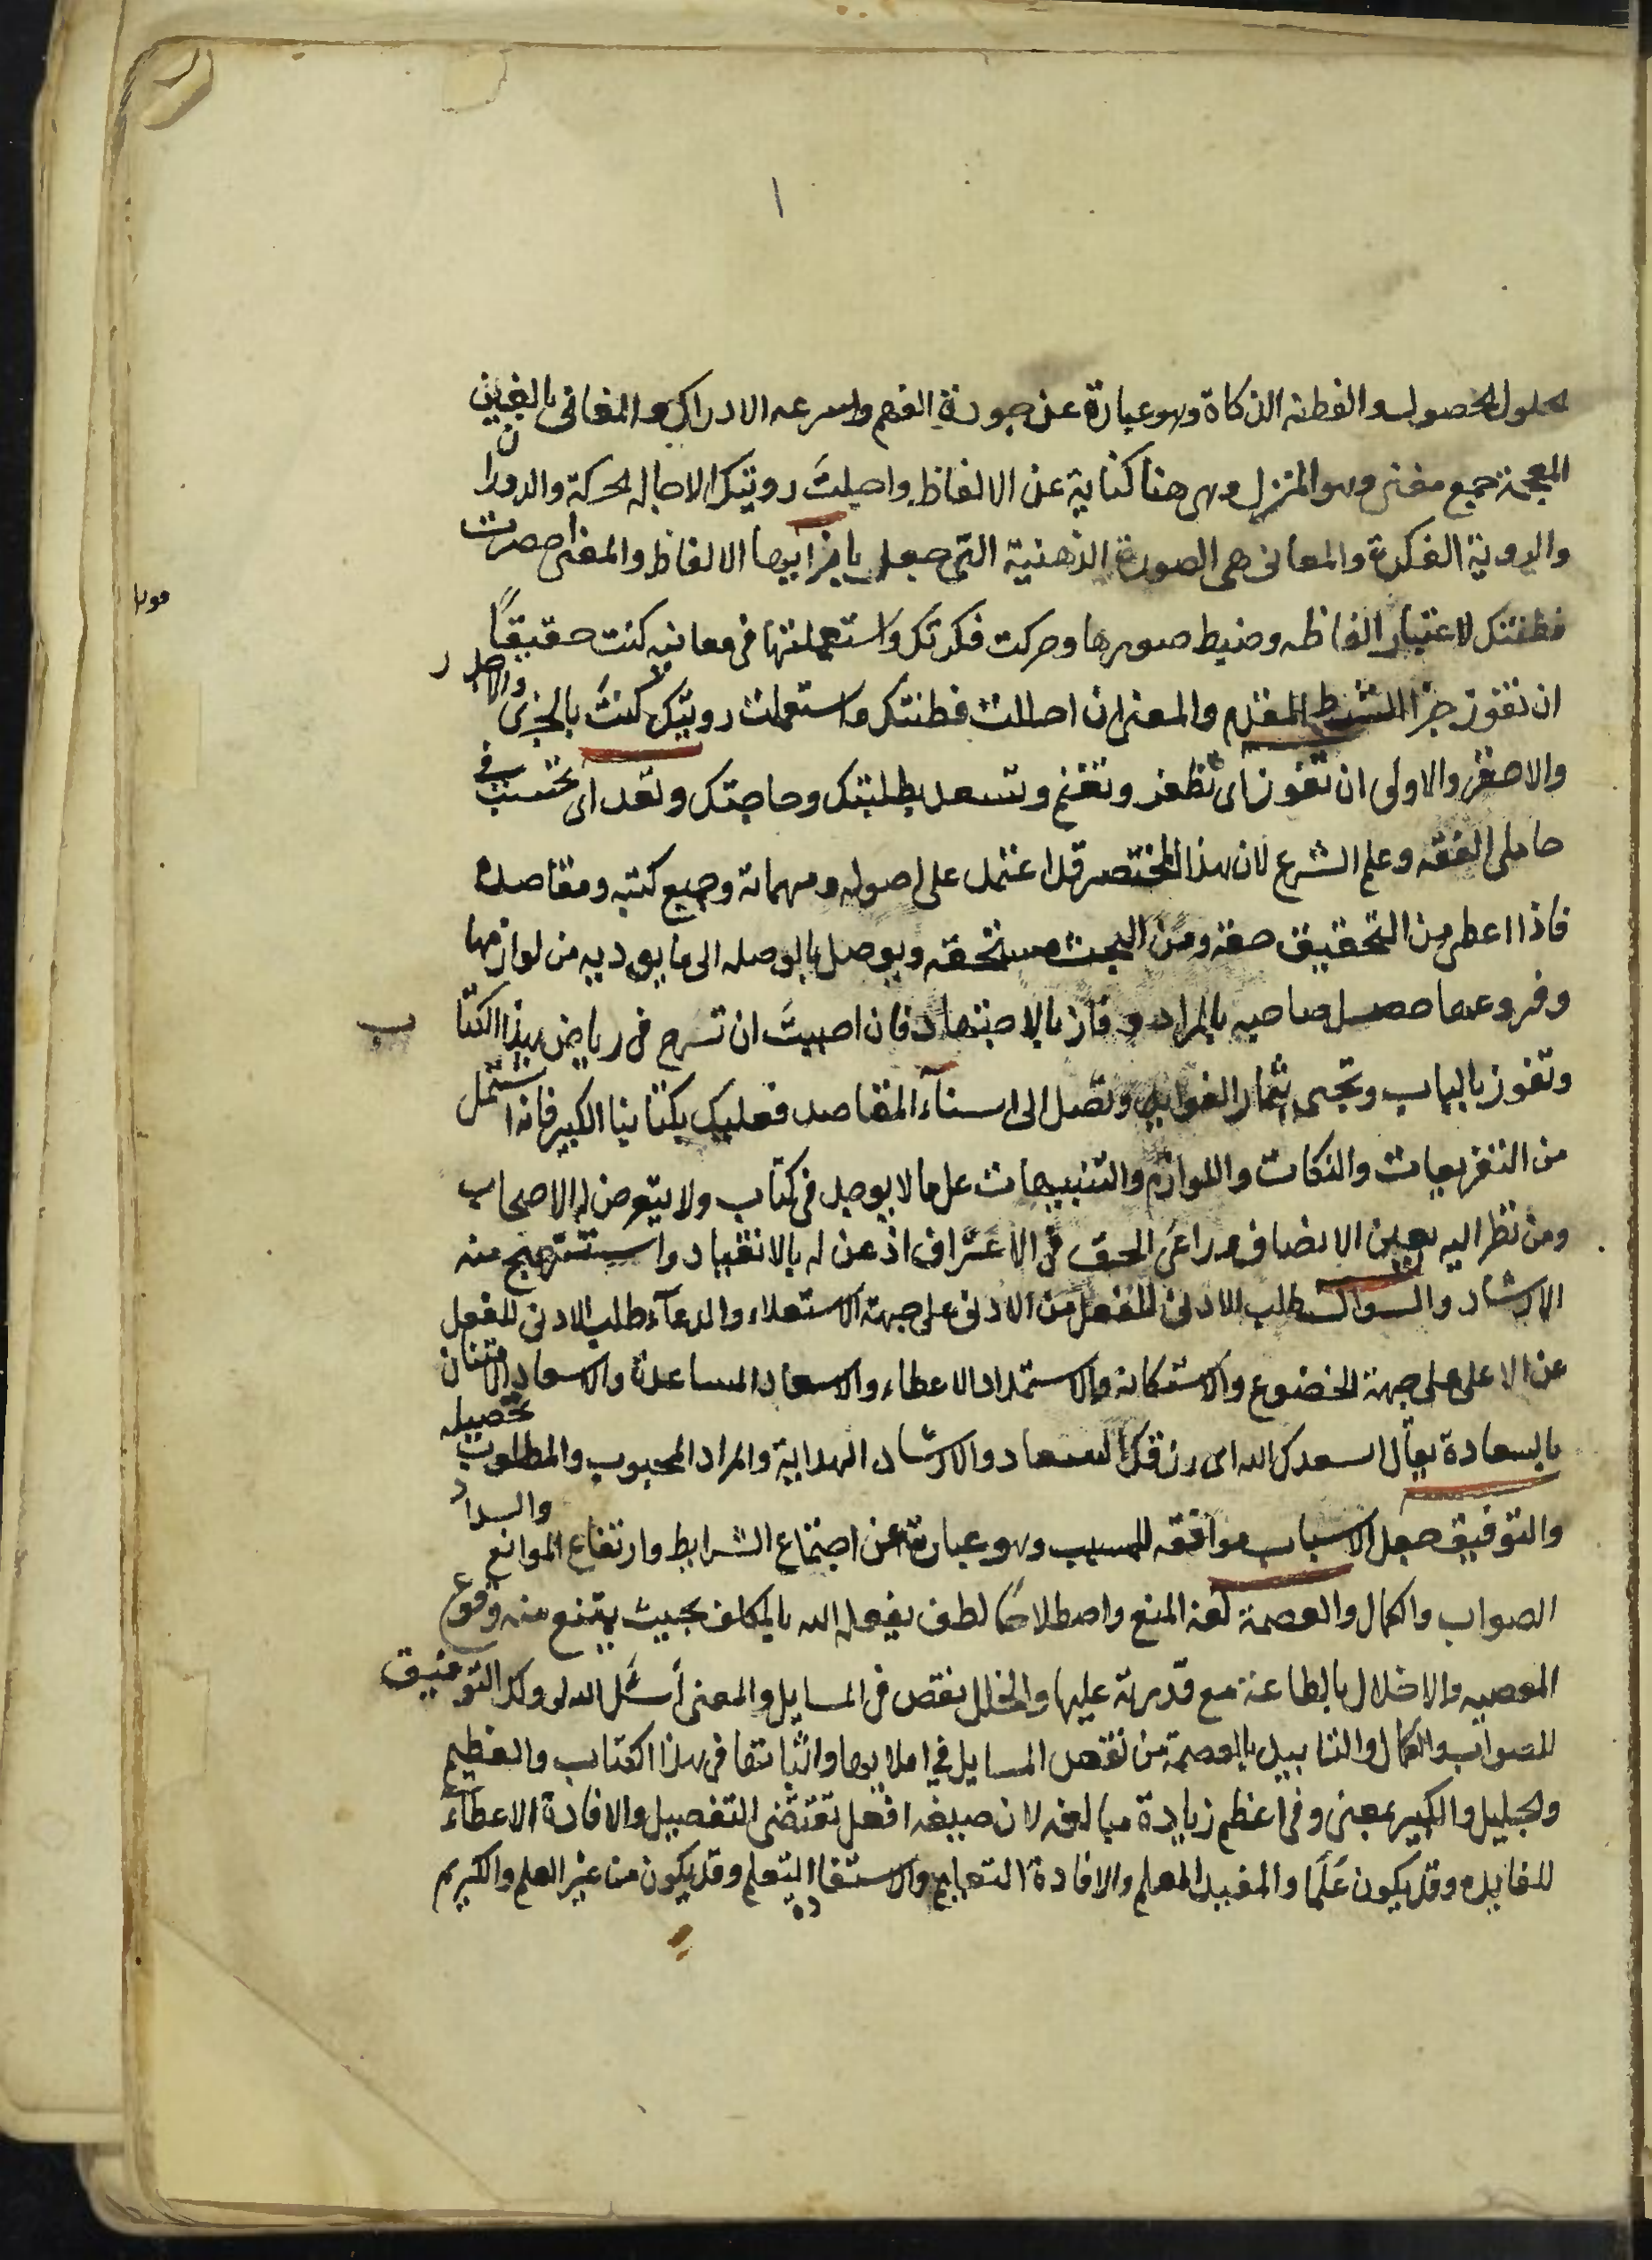 لحلول الحصول والفطنه الذكاة وهو عبارة عن جودة الفهم واسرعه الادراك والمغانى بالغين
المعجمة جمع مغنى وهو المنزل وهى هنا كناية عن الالفاظ واجلتَ رويتك الاجاله الحركة والدوران
والروية الفكرة والمعانى هى الصورة الذهنية التى جعل بازايها الالفاظ والمغنى احصرت
فطنتك لاعتبار الفاظه وضبط صورها وحركت فكرتك واستعملتها فى معانيه كنت حقيقًا
ان تفوز جزا للشرط المقدم والمعنى ان اجللت فطنتك واستعملت رويتك كنتَ بالجزى والاجدر
والاصغر والاولى ان تفوز اى تظفر وتغنم وتسعد بطلبتك وحاجتك وتعد اى تحتسب فى
حاملى الفقه وعلم الشرع لان هذا المختصر قد اشتمل على اصوله ومهماته وجميع كتبه ومقاصده
فاذا اعطى من التحقيق حقه ومن البحث مستحقه ويوصل بالوصله الى ما يوديه من لوازمها
وفروعها حصل صاحبه بالمراد وفاز بالاجتهاد فان احببتَ ان تسرح فى رياض هذا الكتاب
وتفوز باللباب وتجنى ثمار الفوايد وتصل الى اسناء المقاصد فعليك بكتابنا الكبير فانه اشتمل
من التفريعات والنكات واللوازم والتنبيهات على ما لا يوجد فى كتاب ولا يتعرض له الاصحاب
ومن نظر اليه بعين الانصاف وراعى الحق فى الاعتراف اذعن له بالانقياد واستنهج منه
الارشاد والسوال طلب الادنى للفعل من الادنى على جهة الاستعلاء والدعآء طلب الادنى للفعل
عن الاعلى على جهة الخضوع والاستكانه والاستمداد الاعطاء والاسعاد المساعدة والاسعاد الامتنان
بالسعادة يقال اسعدك الله اى رزقك السعاد والارشاد الهداية والمراد المحبوب والمطلوب تحصيله
والتوفيق جعل الاسباب موافقه للمسبب وهو عبارة عن اجتماع الشرايط وارتفاع الموانع والسداد
الصواب والكمال والعصمة لغة المنع واصطلاحًا لطف يفعله الله بالمكلف بحيث يمتنع منه وقوع
المعصيه والاخلال بالطاعة مع قدرته عليها والخلل نقص فى المسايل والمعنى أسئل الله لى ولك التوفيق
للصواب والكمال والتاييد بالعصمة من نقص المسايل فى املايها واثباتها فى هذا الكتاب والعظيم
والجليل والكبير بمعنى وفى اعظم زيادة مبالغه لان صيغه افعل تقتضى التفصيل والافادة الاعطآء
للفايده وقد يكون عَلَمًا والمفيد المعلم والافادة التعليم والاستفادة التعلم وقد يكون من غير العلم والكريم